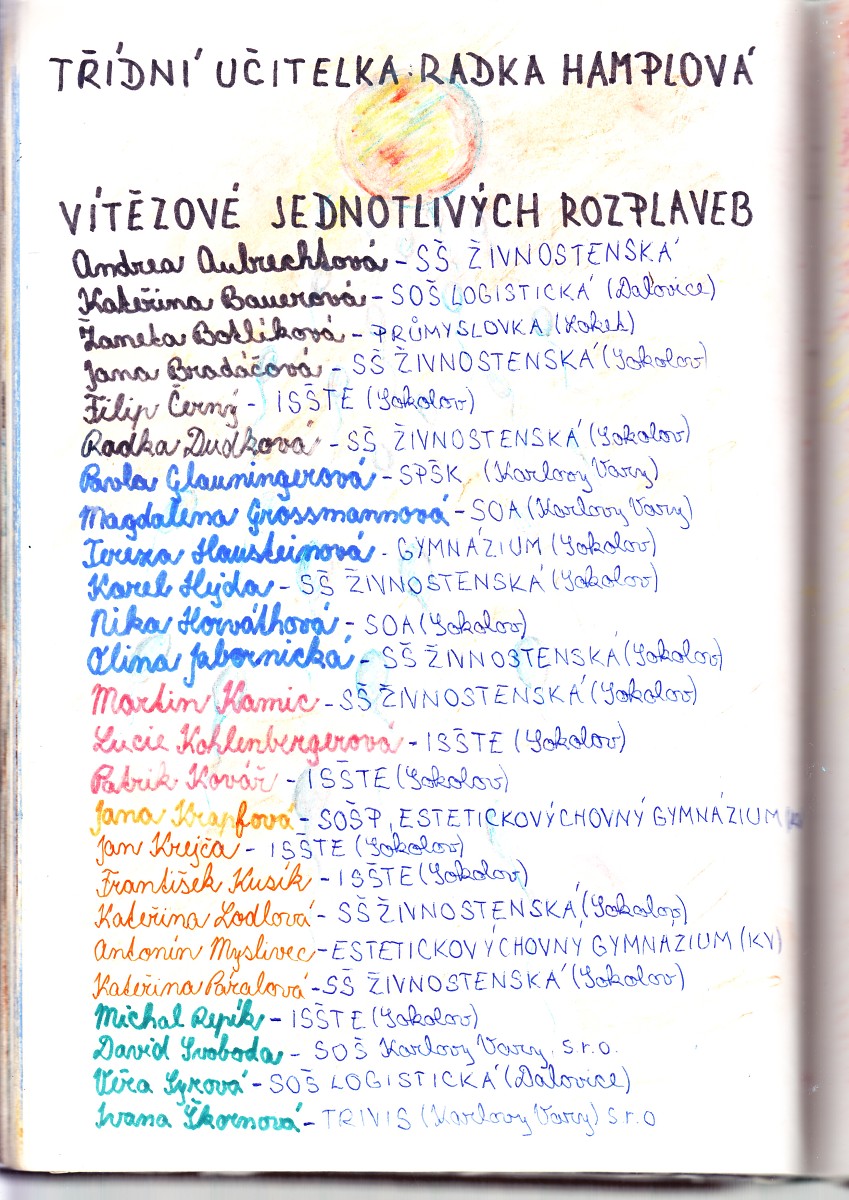 TŘÍDNÍ UČITELKA: RADKA HAMPLOVÁ
VÍTĚZOVÉ JEDNOTLIVÝCH ROZPLAVEB
Andrea Aubrechtová - SŠ ŽIVNOSTENSKÁ
Kateřina Bauerová - SOŠ LOGISTICKÁ (Dalovice)
Žaneta Botlíková - PRŮMYSLOVKA (Loket)
Jana Bradáčová - SŠ ŽIVNOSTENSKÁ (Sokolov)
Filip Černý - ISŠTE (Sokolov)
Radka Dudková - SŠ ŽIVNOSTENSKÁ (Sokolov)
Pavla Glauningerová - SPŠK (Karlovy Vary)
Magdalena Grossmannová - SOA (Karlovy Vary)
Tereza Hausteinová - GYMNÁZIUM (Sokolov)
Karel Hejda - SŠ ŽIVNOSTENSKÁ (Sokolov)
Nika Horváthová - SOA (Sokolov)
Olina Jabornická - SŠ ŽIVNOSTENSKÁ (Sokolov)
Martin Kamic - SŠ ŽIVNOSTENSKÁ (Sokolov)
Lucie Kohlenbergerová - ISŠTE (Sokolov)
Patrik Kovář - ISŠTE (Sokolov)
Jana Krapfová - SOŠP, ESTETICKOVÝCHOVNÝ GYMNÁZIUM
Jan Krejča - ISŠTE (Sokolov)
František Kusík - ISŠTE (Sokolov)
Kateřina Lodlová - SŠ ŽIVNOSTENSKÁ (Sokolov)
Antonín Myslivec - ESTETICKOVÝCHOVNÝ GYMNÁZIUM (KV)
Kateřina Pařalová - SŠ ŽIVNOSTENSKÁ (Sokolov)
Michal Repík - ISŠTE (Sokolov)
David Svoboda - SOŠ Karlovy Vary s.r.o.
Věra Syrová - SOŠ LOGISTICKÁ (Dalovice)
Ivana Škornová - TRIVIS (Karlovy Vary) s.r.o